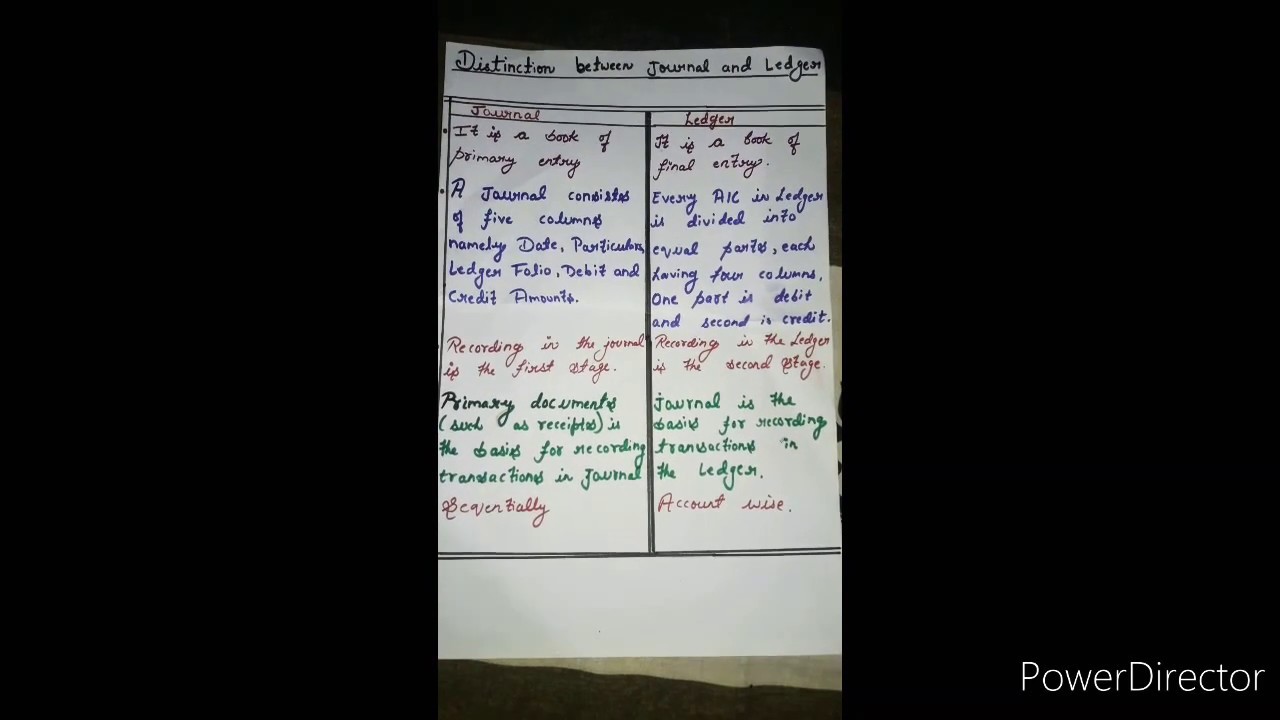 Distinction between Journal and Ledger
Journal
It is a book of
primary entry
A Journal consists
of five columns
namely Date, Particulars,
Ledger Folio, Debit and
Credit Amounts.
Recording in the journal
is the first stage.
Primary documents
(such as receipts) is
the basis for recording
transactions in Journal
Sequentially
Ledger
It is a book of
final entry.
Every A/C in Ledger
is divided into
equal parts, each
having four columns.
One part is debit
and second is credit.
Recording in the Ledger
is the second stage.
Journal is the
basis for recording
transactions in
the Ledger.
Account wise.
PowerDirector